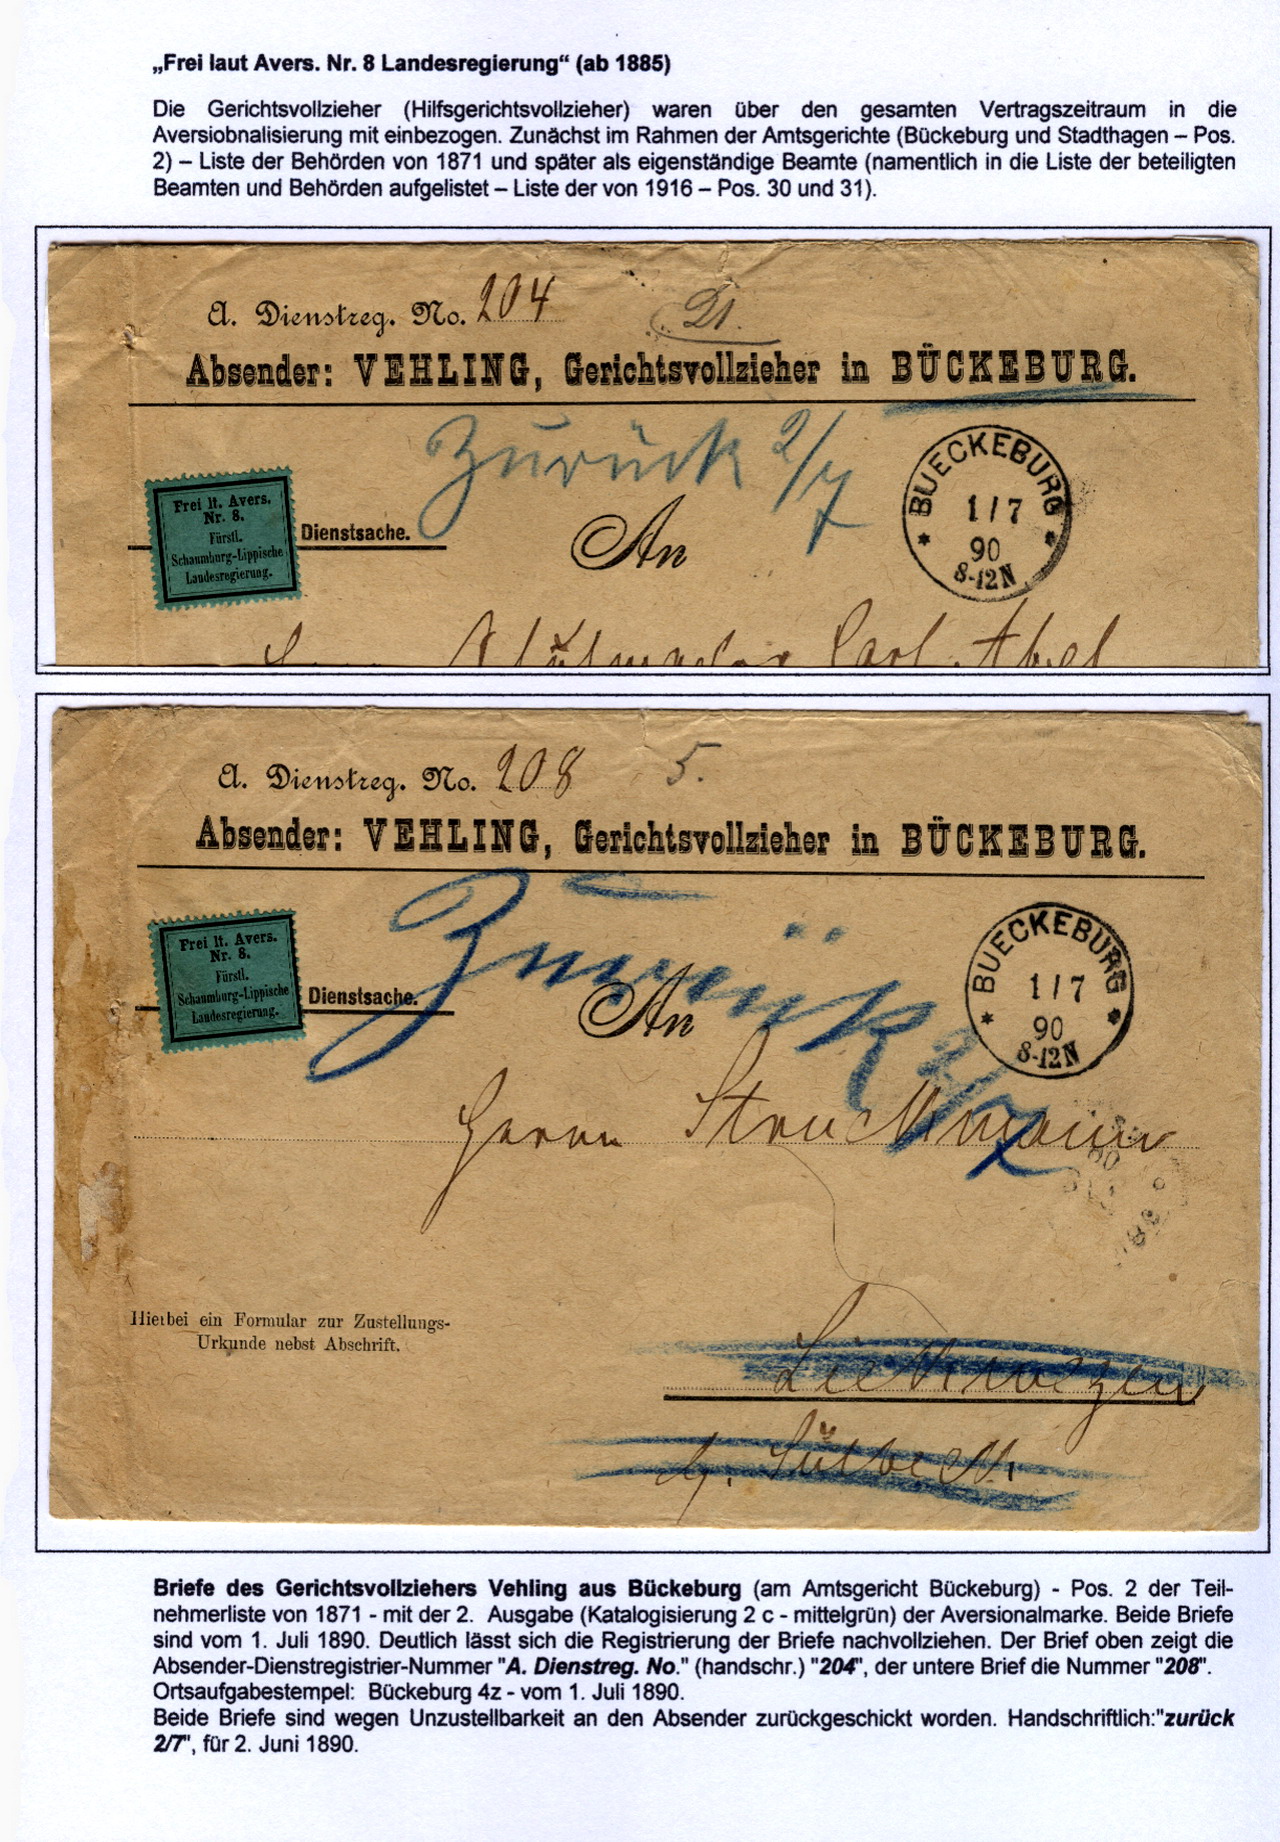 „Frei laut Avers. Nr. 8 Landesregierung“ (ab 1885)
Die Gerichtsvollzieher (Hilfsgerichtsvollzieher) waren über den gesamten Vertragszeitraum in die
Aversiobnalisierung mit einbezogen. Zunächst im Rahmen der Amtsgerichte (Bückeburg und Stadthagen – Pos.
2) – Liste der Behörden von 1871 und später als eigenständige Beamte (namentlich in die Liste der beteiligten
Beamten und Behörden aufgelistet – Liste der von 1916 – Pos. 30 und 31).
A. Dienstreg. No. 204 21.
Absender: VEHLING, Gerichtsvollzieher in BÜCKEBURG.
Zurück 2/7
BUECKEBURG
1/7
90
8-12N
Frei lt. Avers.
Nr. 8.
Fürstl.
Schaumburg-Lippische
Landesregierung.
Dienstsache.
An
Carl Abel
A. Dienstreg. No. 208 5.
Absender: VEHLING, Gerichtsvollzieher in BÜCKEBURG.
Zurück 2/7
BUECKEBURG
1/7
90
8-12N
Frei lt. Avers.
Nr. 8.
Fürstl.
Schaumburg-Lippische
Landesregierung.
Dienstsache.
An
Herrn Struckmann
Hierbei ein Formular zur Zustellungs-
Urkunde nebst Abschrift.
b. Sülbeck
Briefe des Gerichtsvollziehers Vehling aus Bückeburg (am Amtsgericht Bückeburg) - Pos. 2 der Teil-
nehmerliste von 1871 - mit der 2. Ausgabe (Katalogisierung 2 c - mittelgrün) der Aversionalmarke. Beide Briefe
sind vom 1. Juli 1890. Deutlich lässt sich die Registrierung der Briefe nachvollziehen. Der Brief oben zeigt die
Absender-Dienstregistrier-Nummer "A. Dienstreg. No." (handschr.) "204", der untere Brief die Nummer "208".
Ortsaufgabestempel: Bückeburg 4z - vom 1. Juli 1890.
Beide Briefe sind wegen Unzustellbarkeit an den Absender zurückgeschickt worden. Handschriftlich:"zurück
2/7", für 2. Juni 1890.